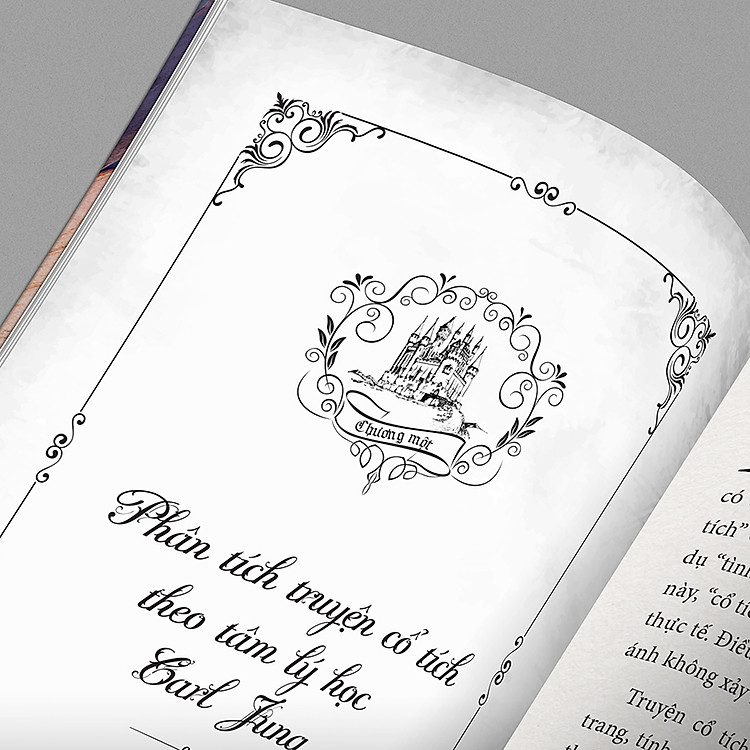 Chương một
Phân tích truyện cổ tích
theo tâm lý học
Carl Jung
có
tích”
dụ “tình
này, “cổ tích
thực tế. Điều
ánh không xảy
Truyện cổ tích
trang, tính